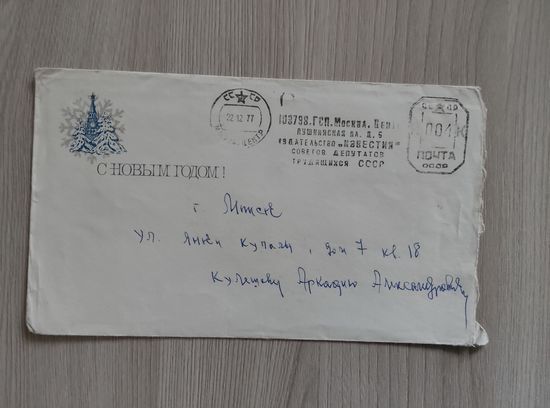 СССР
22.12.77
103798, ГСП, Москва, Центр
Пушкинская пл. д. 5
издательство „ИЗВЕСТИЯ"
Советов депутатов
трудящихся СССР
СССР
004 К
ПОЧТА
С НОВЫМ ГОДОМ!
г. Минск
ул. Янки Купалы, дом 7 кв. 18
Кулешову Аркадию Александровичу